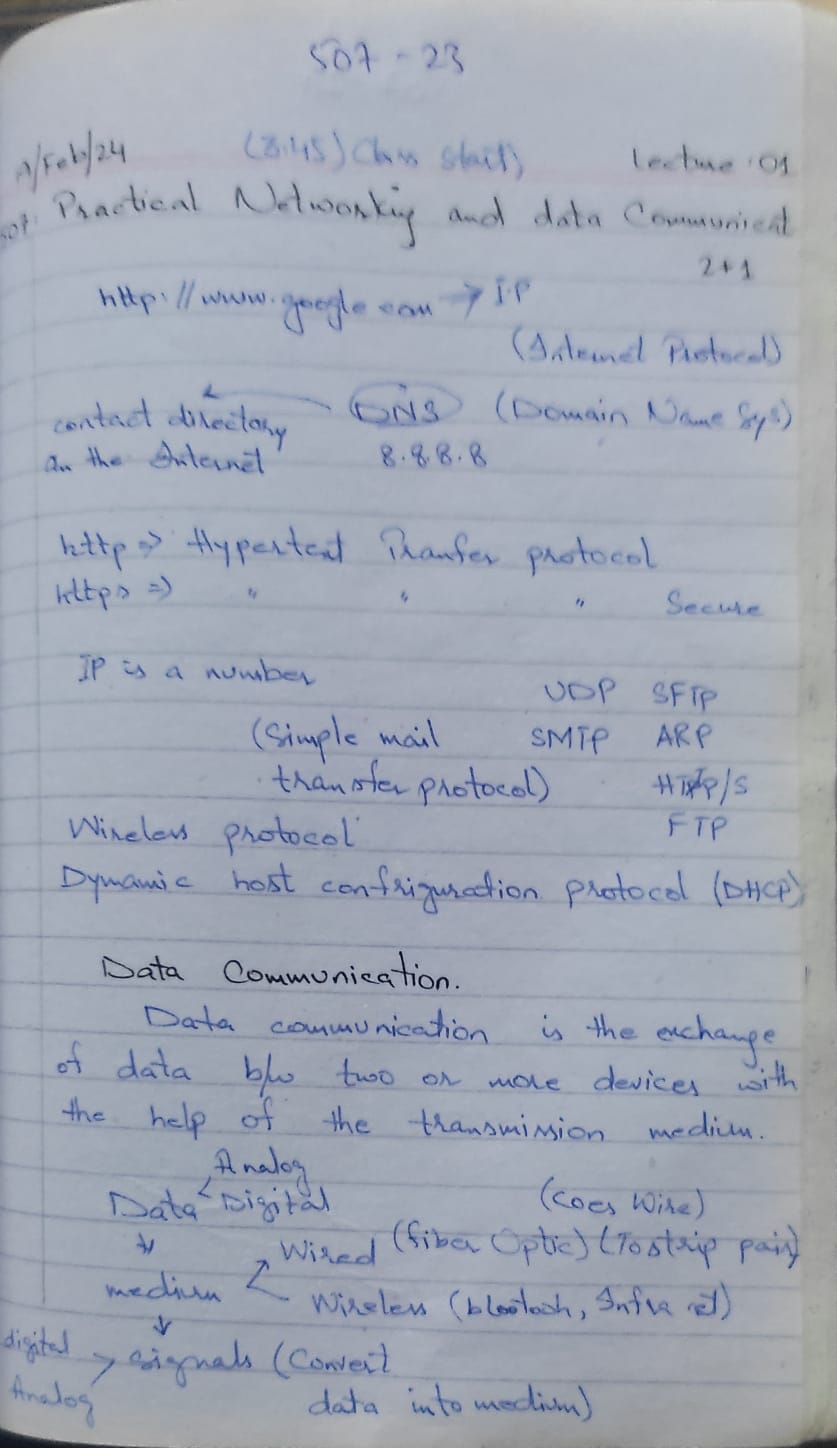 507 - 23
/Feb/24 (8:45) Class start) Lecture :01
507. Practical Networkig and data Communicat
2+1
http://www.google.com → IP
(Internel Protocol)
contact directory ← DNS (Domain Name Sys)
on the Internet 8.8.8.8
http => Hypertext Tranfer protocol
https => " " " Secure
IP is a number
UDP SFTP
(Simple mail SMTP ARP
transfer protocol) HTTP/S
Wireless protocol FTP
Dynamic host confriguration protocol (DHCP)
Data Communication.
Data communication is the exchange
of data b/w two or more devices with
the help of the transmission medium.
Analog
Data < Digital (Coes Wire)
↓ Wired (fiber Optic) (Tostrip pair)
medium < Wireless (blootooh, Infra red)
↓
digital > signals (Convert
Analog data into medium)